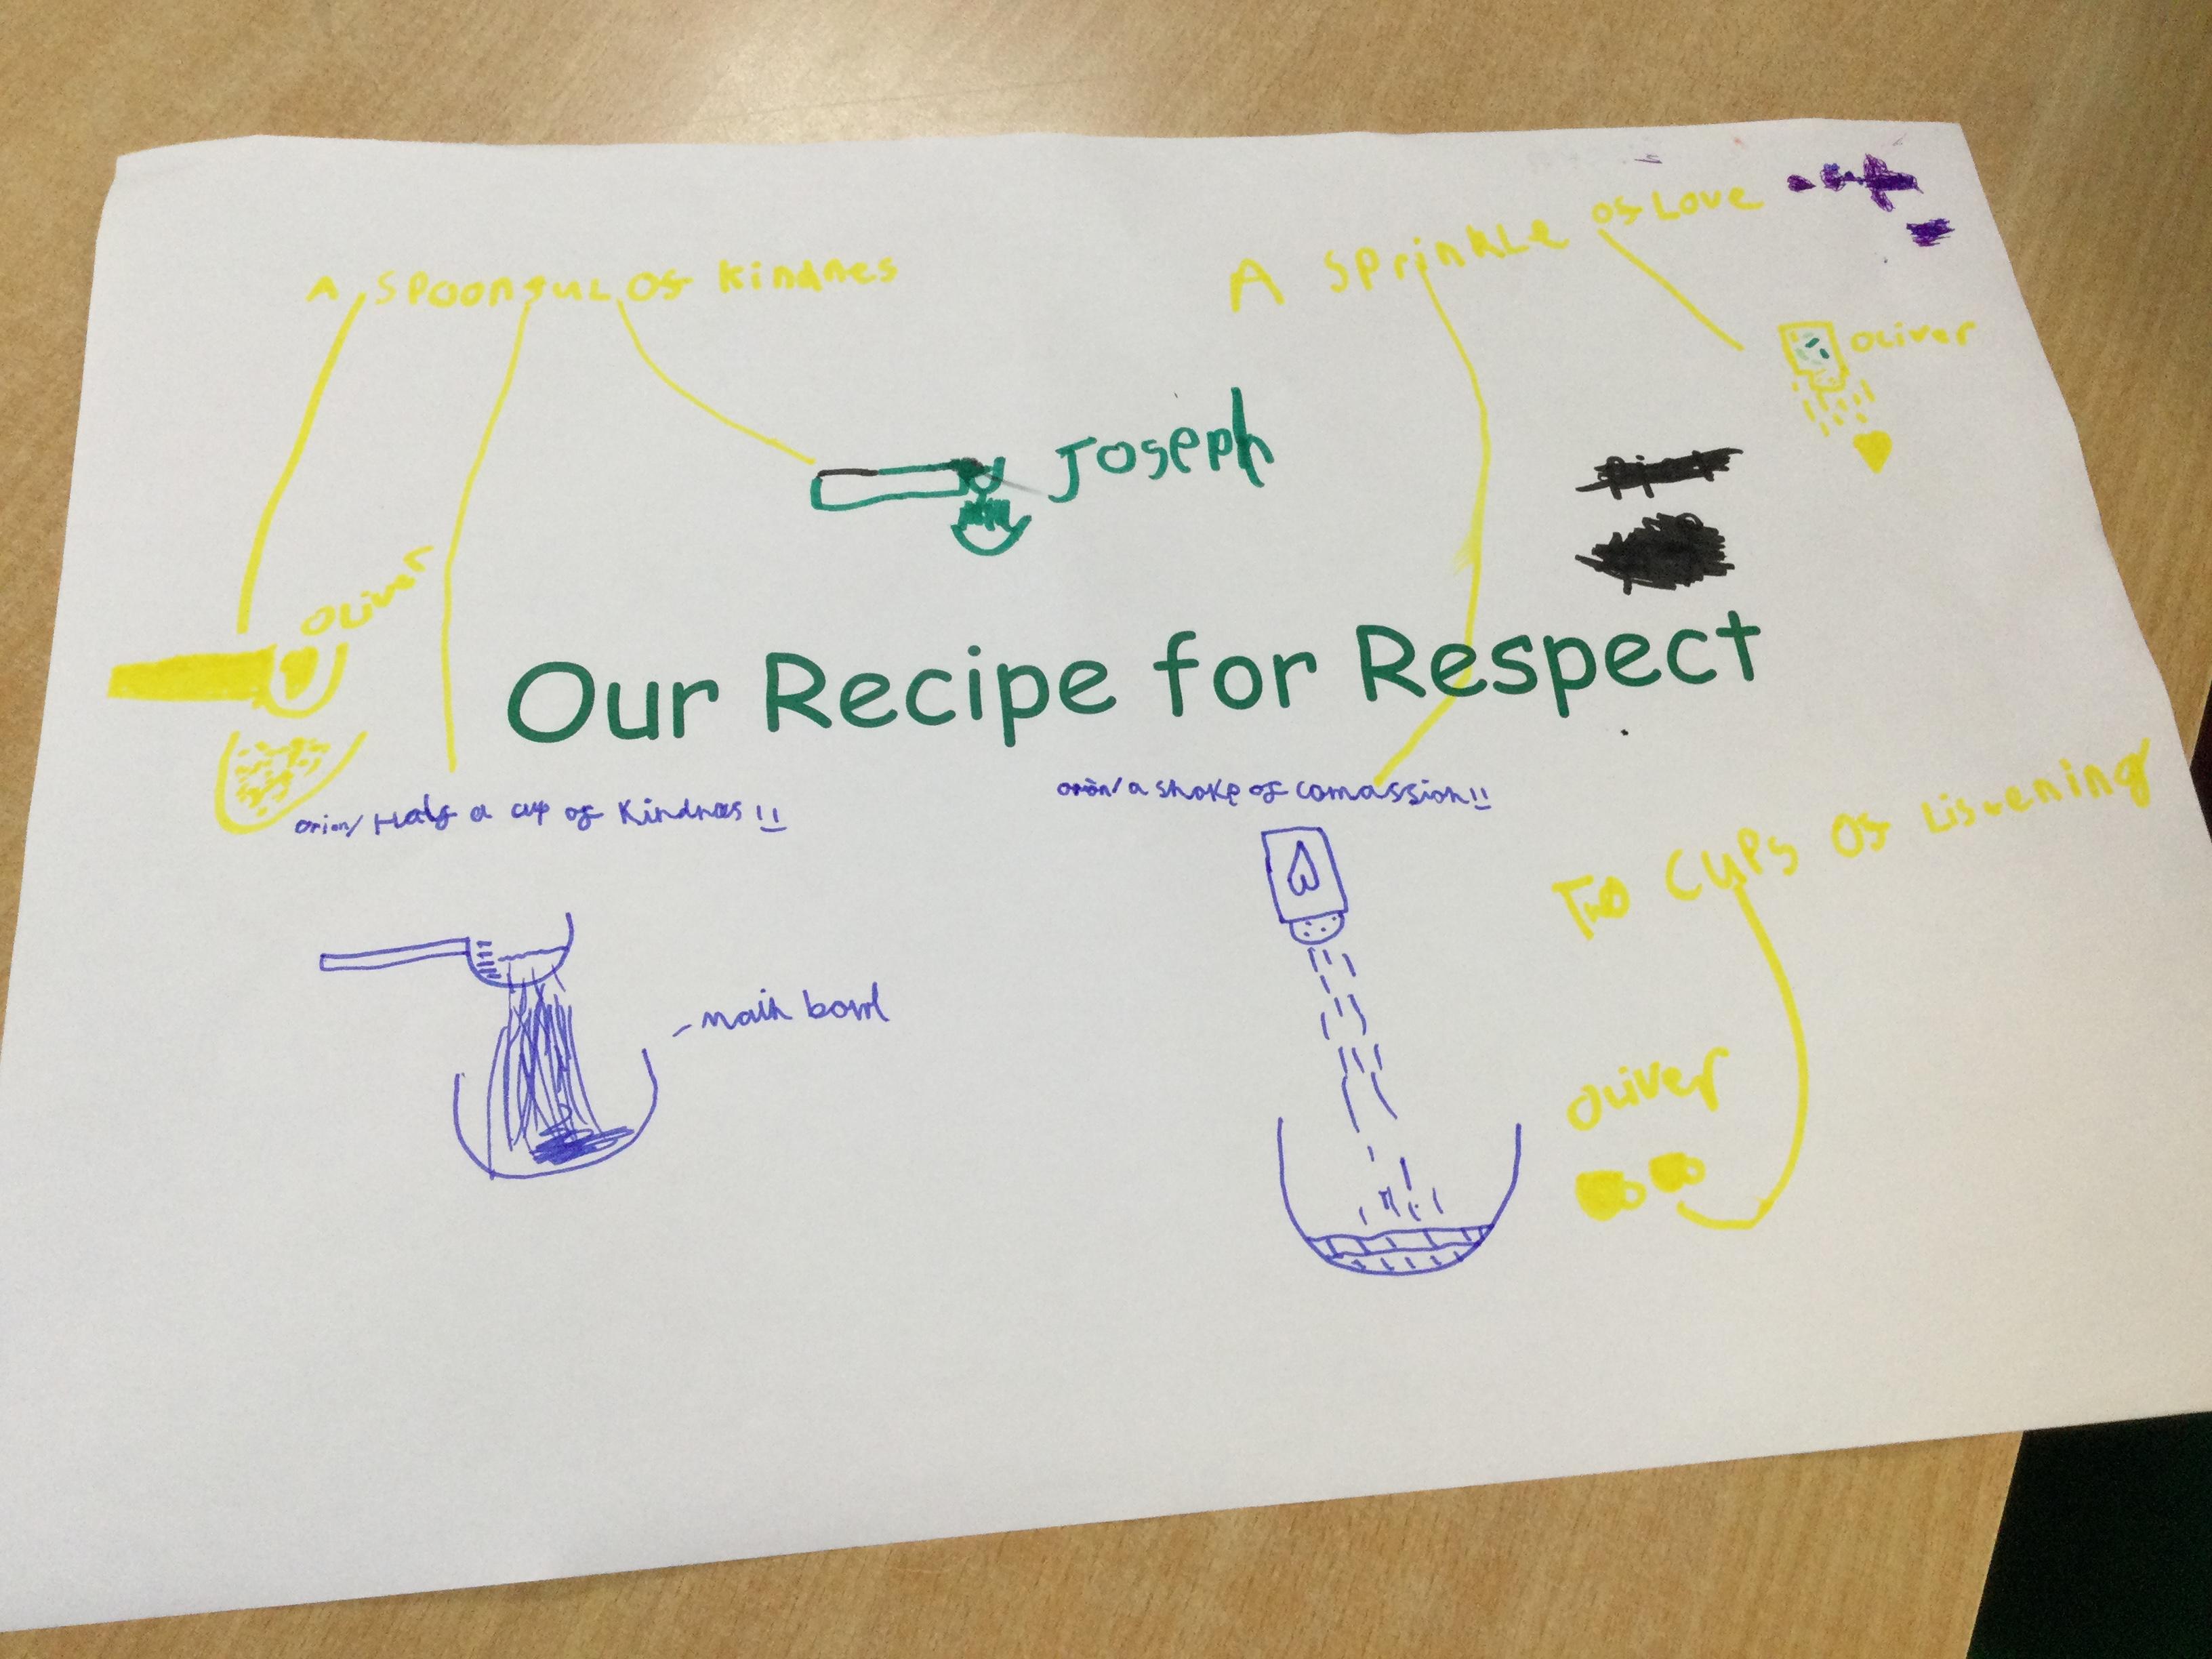 A Sprinkle of Love
A spoonful of kindnes
Oliver
Joseph
Oliver
Our Recipe for Respect
orion/ Half a cup of Kindness !!
orion/ a shake of comassion!!
Two Cups of Listening
main bowl
Oliver